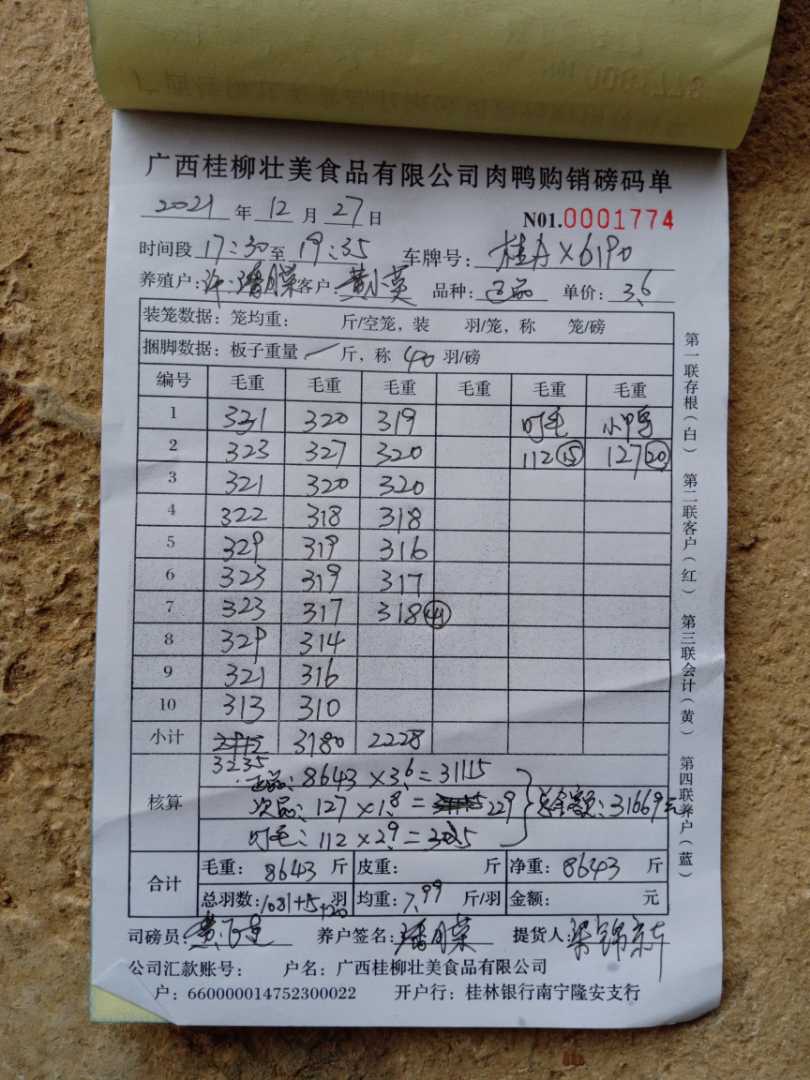 广西桂柳壮美食品有限公司肉鸭购销磅码单
2021 年 12 月 27 日 N01.0001774
时间段 17:30 至 19:35 车牌号: 桂A X6190
养殖户: 客户: 黄小英 品种: 正品 单价: 3.6
装笼数据: 笼均重: 斤/空笼, 装 羽/笼, 称 笼/磅
捆脚数据: 板子重量 / 斤, 称 40 羽/磅
编号 毛重 毛重 毛重 毛重 毛重 毛重
1 331 320 319 叮毛 小鸭
2 323 327 320 112 15 127 20
3 321 320 320
4 322 318 318
5 329 319 316
6 323 319 317
7 323 317 318 41
8 329 314
9 321 316
10 313 310
小计 3180 2228
3235
核算 正品: 8643 × 3.6 = 31115
次品: 127 × 1.8 = 229 总金额: 31669元
叮毛: 112 × 2.9 = 325
合计 毛重: 8643 斤 皮重: 斤 净重: 8643 斤
总羽数: 1081+15+20 羽 均重: 7.99 斤/羽 金额: 元
司磅员: 养户签名: 提货人:
公司汇款账号: 户名: 广西桂柳壮美食品有限公司
户: 660000014752300022 开户行: 桂林银行南宁隆安支行
第一联存根(白) 第二联客户(红) 第三联会计(黄) 第四联养户(蓝)